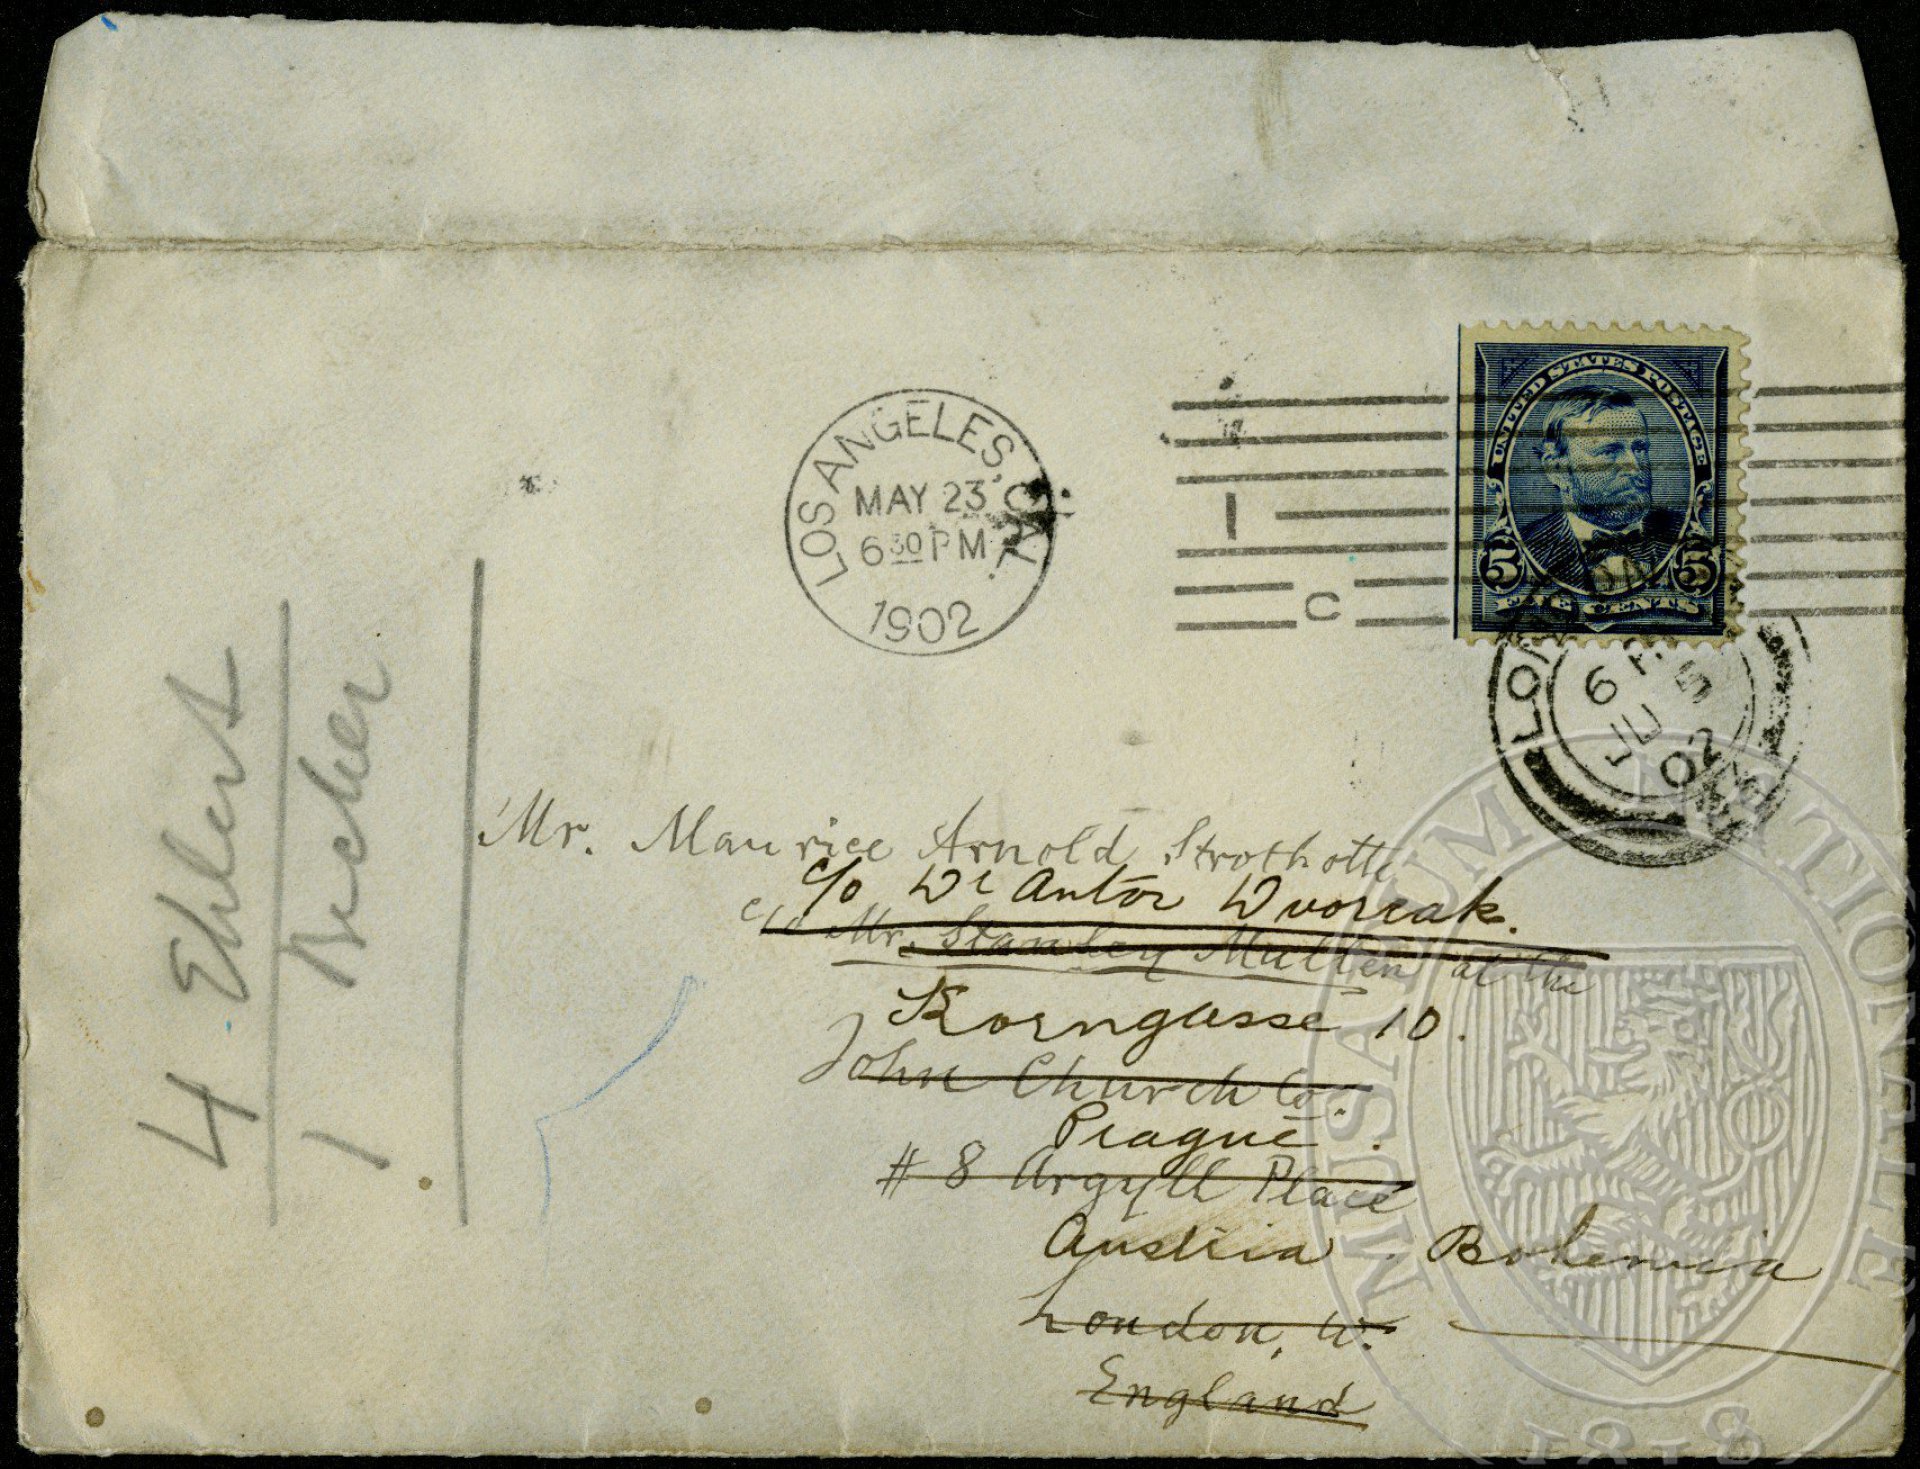 LOS ANGELES, CAL.
MAY 23
6 30 PM
1902
1
C
UNITED STATES POSTAGE
5 5
FIVE CENTS
LONDON
6
JU 5
02
4 Ehlert
1 Becher
Mr. Maurice Arnold Strothotte
c/o Dr Anton Dvoreak.
c/o Mr. Stanley Mullen at the
Korngasse 10.
John Church Co.
Prague.
# 8 Argyll Place
Austria Bohemia
London, W.
England
MUSAEUM NATIONALE
1818